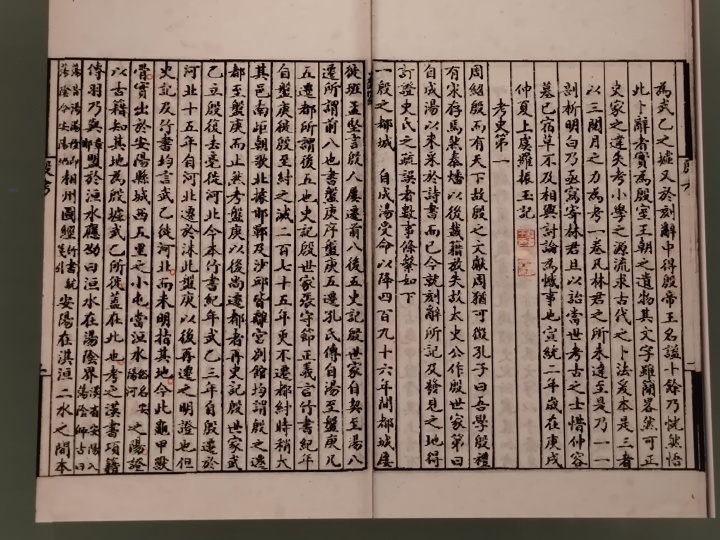 為武乙之墟又於刻辭中得殷帝王名諡十餘乃恍然悟
此卜辭者實為殷室王朝之遺物其文字雖簡畧然可正
史家之違失考小學之源流求古代之卜法爰本是三者
以三閱月之力為考一卷凡林君之所未達至是乃一一
剖析明白乃亟寫寄林君且以詒當世考古之士惜仲容
墓已宿草不及相與討論為憾事也宣統二年歲在庚戌
仲夏上虞羅振玉記
考史第一
周紹殷而有天下故殷之文獻周猶可徵孔子曰吾學殷禮
有宋存焉然秦燔以後載籍放失故太史公作殷世家第曰
自成湯以來采於詩書而已今就刻辭所記及發見之地得
訂證史氏之疏誤者數事條繫如下
一殷之都城 自成湯受命以降四百九十六年間都城屢
徙班孟堅言殷人屢遷前八後五史記殷世家自契至湯八
遷所謂前八也書盤庚序盤庚五遷孔氏傳自湯至盤庚凡
五遷都所謂後五也史記殷世家張守節正義言竹書紀年
自盤庚徙殷至紂之滅二百七十五年更不遷都紂時稍大
其邑南距朝歌北據邯鄲及沙丘皆離宮別館均謂殷之遷
都至盤庚而止然考盤庚以後尚遷都者再史記殷世家武
乙立殷復去亳徙河北今本竹書紀年武乙三年自殷遷於
河北十五年自河北遷於沬此盤庚以後再遷之明證也但
史記及竹書均言武乙徙河北而未明指其地今此龜甲獸
骨實出於安陽縣城西五里之小屯當洹水之陽證
以古籍知其地為殷墟武乙所徙蓋在此也考之漢書項籍
傳羽乃與章邯盟於洹水應劭曰洹水在湯陰界
相州圖經安陽在淇洹二水之間本